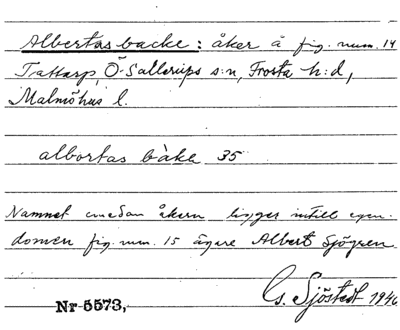 Albertas backe: åker å fig. num. 14
Trattarp, Ö. Sallerups s:n, Frosta h:d,
Malmöhus l.
albertas bàke 35
Namnet medan åkern ligger intill egen-
domen fig. num. 15 ägare Albert Sjögren.
G. Sjöstedt 1946
Nr 5573,